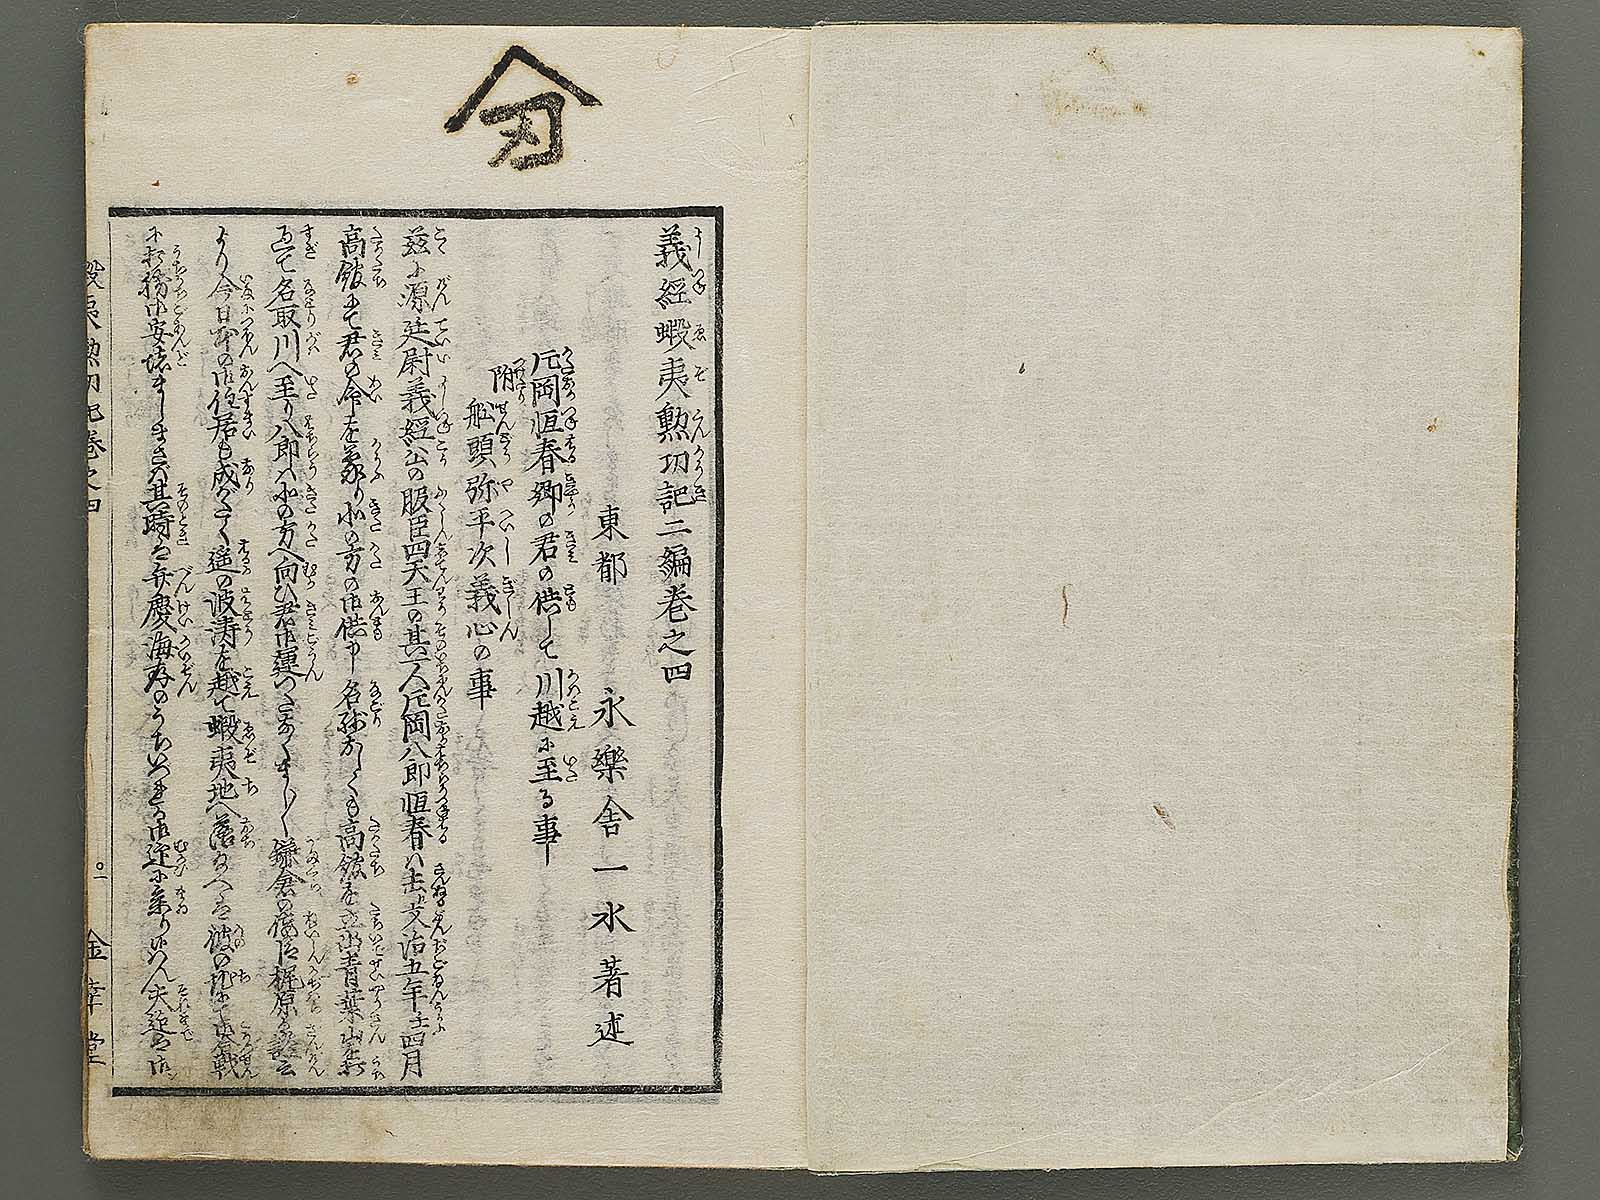 義經蝦夷勲功記二編巻之四
東都　永樂舎一水著述
片岡恒春卿の君の供して川越に至る事
附　船頭弥平次義心の事
茲に源廷尉義經公の股臣四天王の其一人片岡八郎恒春ハ去文治五年壬四月
高舘にて君の命を蒙り北の方の御供申し名殘おしくも高舘を立出青葉山を打
過て名取川へ至り八郎ハ北の方へ向ひ君御運つたなくましまし鎌倉の佞臣梶原が讒言
より今日本の御住居も成がたく遥の波濤を越て蝦夷地へ落給へは彼の地にて御合戦
に打勝御安堵ましまさバ其時は弁慶海尊のうちいづれか御迎に参り候はん夫迄は御
蝦夷勲功記巻之四
〇一
金幸堂